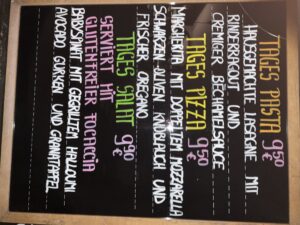 TAGES PASTA 9.50 €
HAUSGEMACHTE LASAGNE MIT
RINDERRAGOUT UND
CREMIGER BECHAMELSAUCE
TAGES PIZZA 9.50 €
MARGHERITA MIT DOPPELTEM MOZZARELLA
SCHWARZEN OLIVEN KNOBLAUCH UND
FRISCHER OREGANO
TAGES SALAT 9.90 €
SERVIERT MIT
GLUTENFREIER FOCACCIA
BABYSPINAT MIT GEGRILLTEM HALLOUMI
AVOCADO, GURKEN UND GRANATAPFEL